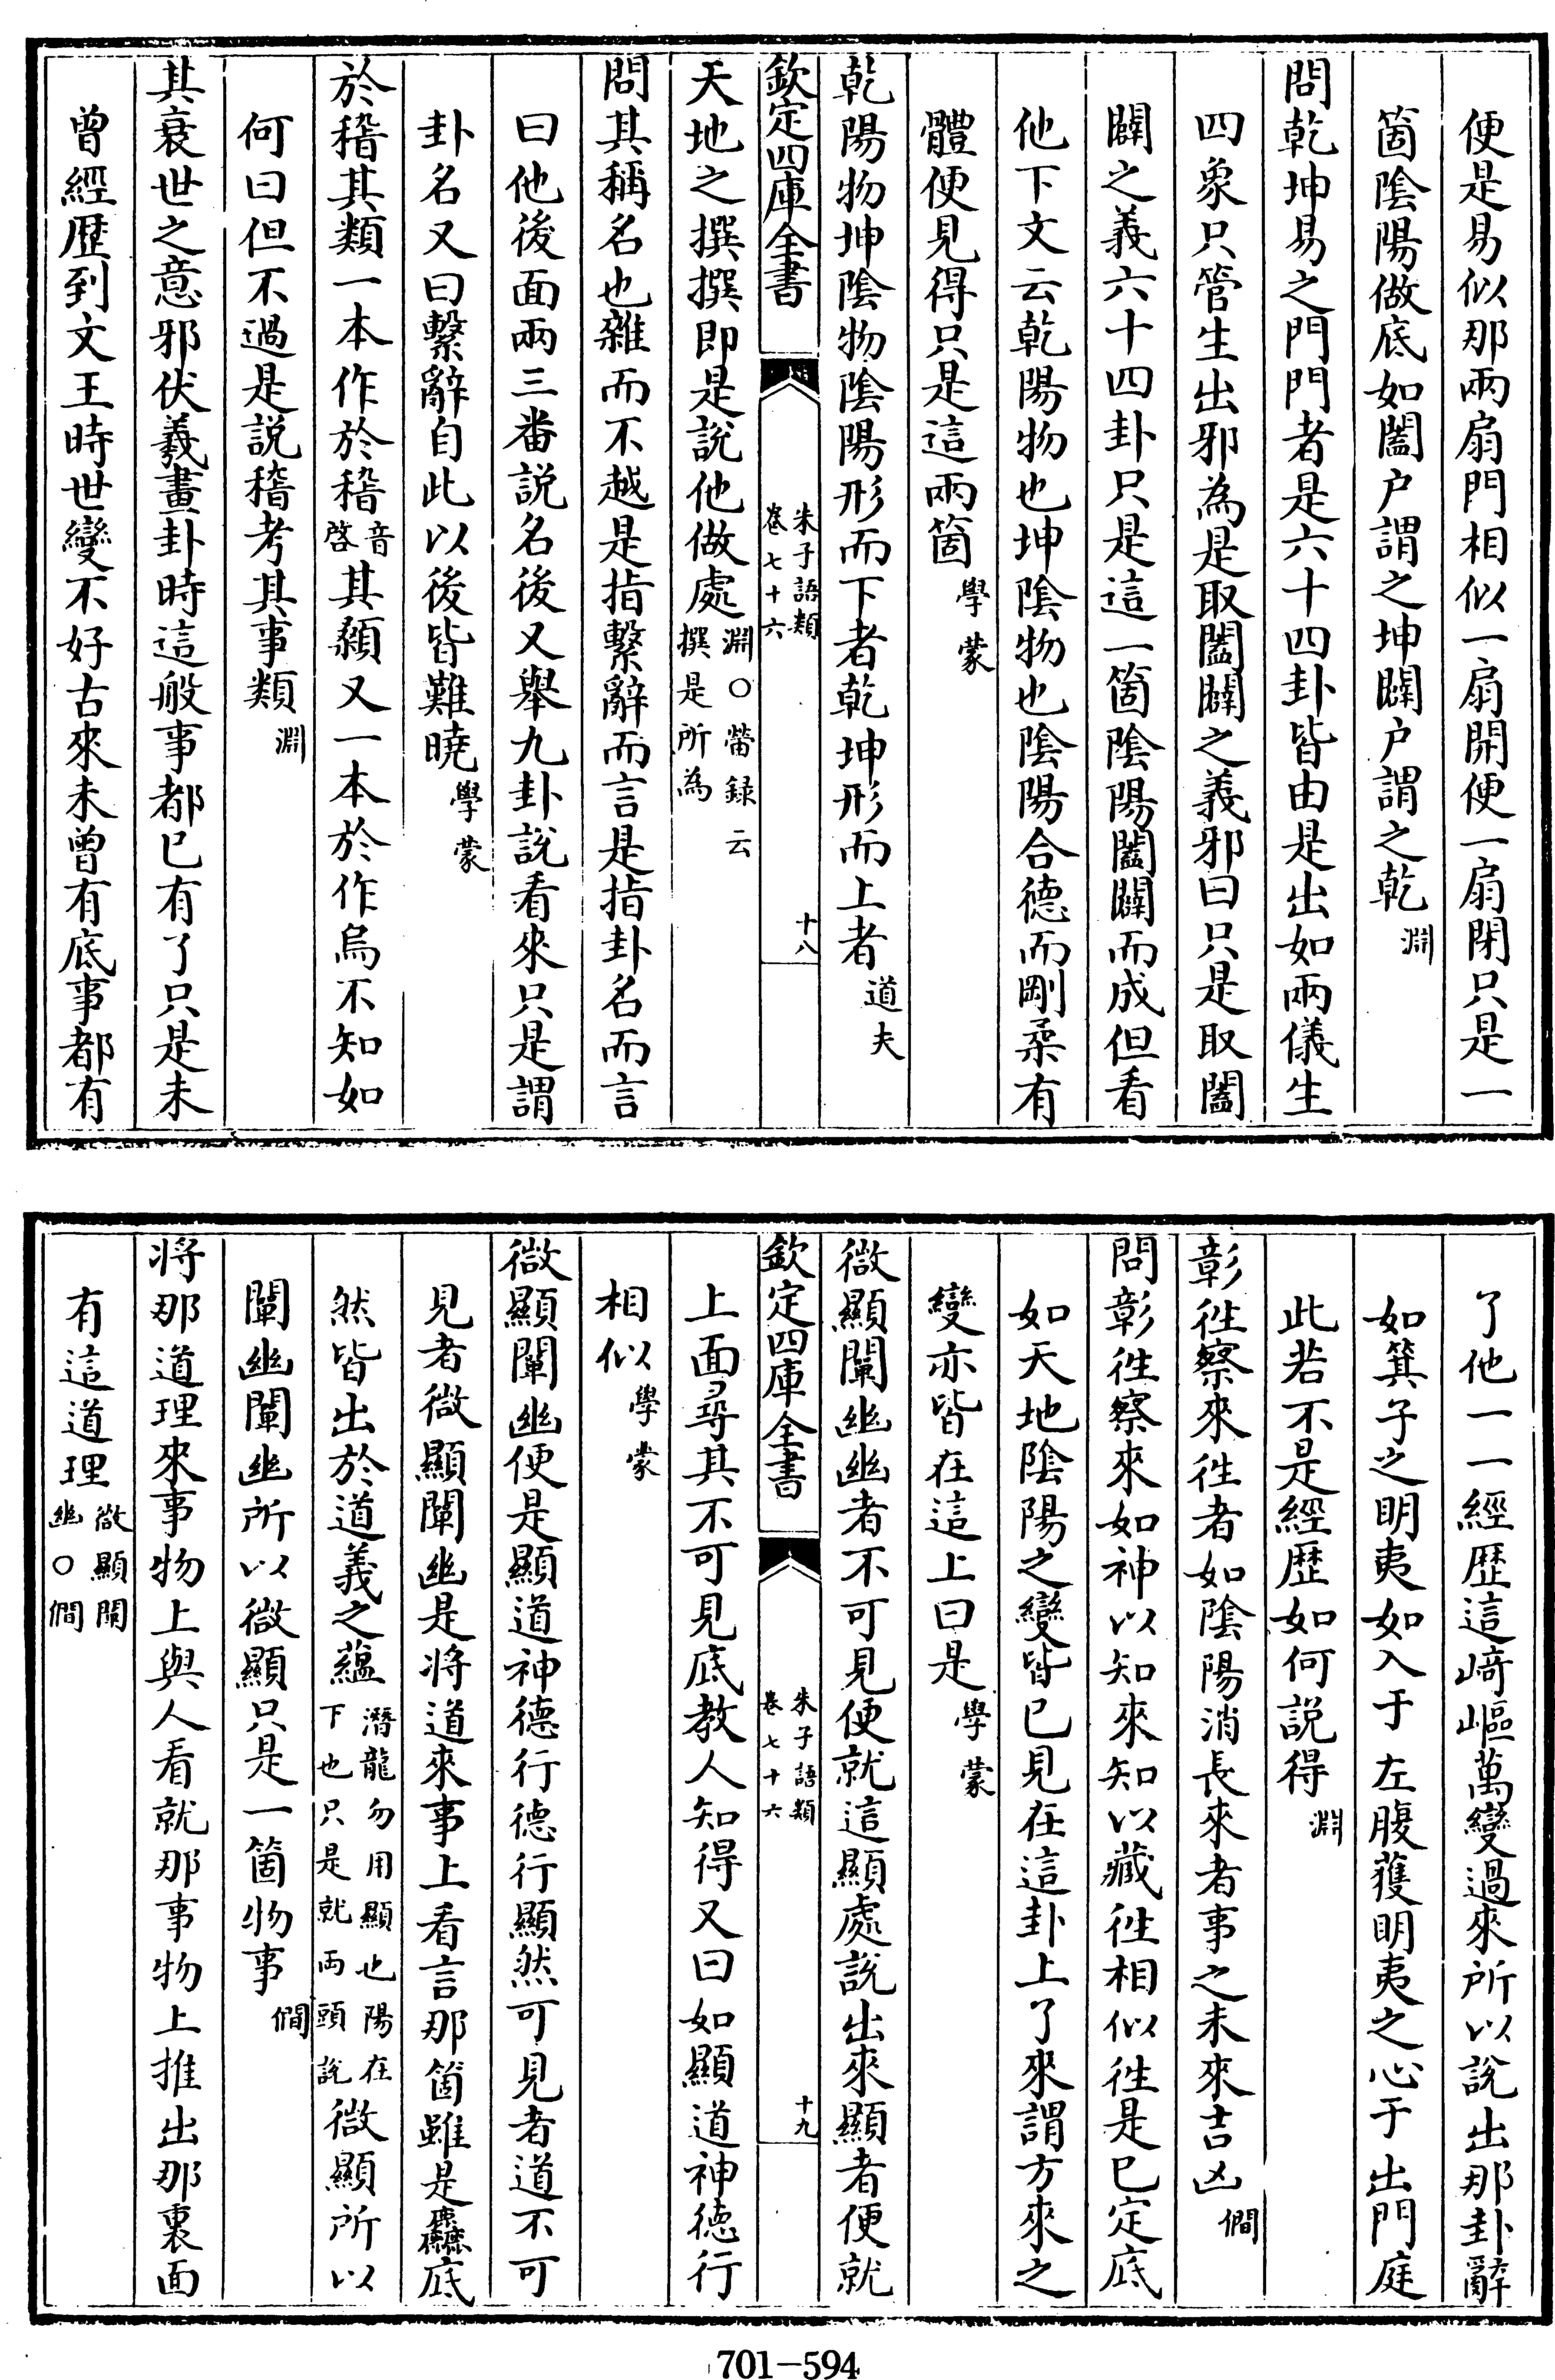 便是易似那兩扇門相似一扇開便一扇閉只是一
箇陰陽做底如闔户謂之坤闢户謂之乾淵
問乾坤易之門門者是六十四卦皆由是出如兩儀生
四象只管生出邪為是取闔闢之義邪曰只是取闔
闢之義六十四卦只是這一箇陰陽闔闢而成但看
他下文云乾陽物也坤陰物也陰陽合德而剛柔有
體便見得只是這兩箇學蒙
乾陽物坤陰物陰陽形而下者乾坤形而上者道夫
欽定四庫全書
朱子語類
卷七十六
十八
天地之撰撰即是說他做處淵〇㽦録云
撰是所為
問其稱名也雜而不越是指繫辭而言是指卦名而言
曰他後面兩三番説名後又舉九卦說看來只是謂
卦名又曰繫辭自此以後皆難曉學蒙
於稽其類一本作於稽音啓其類又一本於作烏不知如
何曰但不過是説稽考其事類淵
其衰世之意邪伏羲畫卦時這般事都已有了只是未
曾經歴到文王時世變不好古來未曾有底事都有
了他一一經歴這﨑嶇萬變過來所以說出那卦辭
如箕子之明夷如入于左腹獲明夷之心于出門庭
此若不是經歴如何説得淵
彰徃察來徃者如陰陽消長來者事之未來吉凶僩
問彰徃察來如神以知來知以藏徃相似徃是已定底
如天地陰陽之變皆已見在這卦上了來謂方來之
變亦皆在這上曰是學蒙
微顯闡幽幽者不可見便就這顯處説出來顯者便就
欽定四庫全書
朱子語類
卷七十六
十九
上面尋其不可見底教人知得又曰如顯道神德行
相似學蒙
微顯闡幽便是顯道神德行德行顯然可見者道不可
見者微顯闡幽是将道來事上看言那箇雖是麤底
然皆出於道義之藴潛龍勿用顯也陽在
下也只是就両頭説微顯所以
闡幽闡幽所以微顯只是一箇物事僩
将那道理來事物上與人看就那事物上推出那裏面
有這道理微顯闡
幽〇僩
701-594